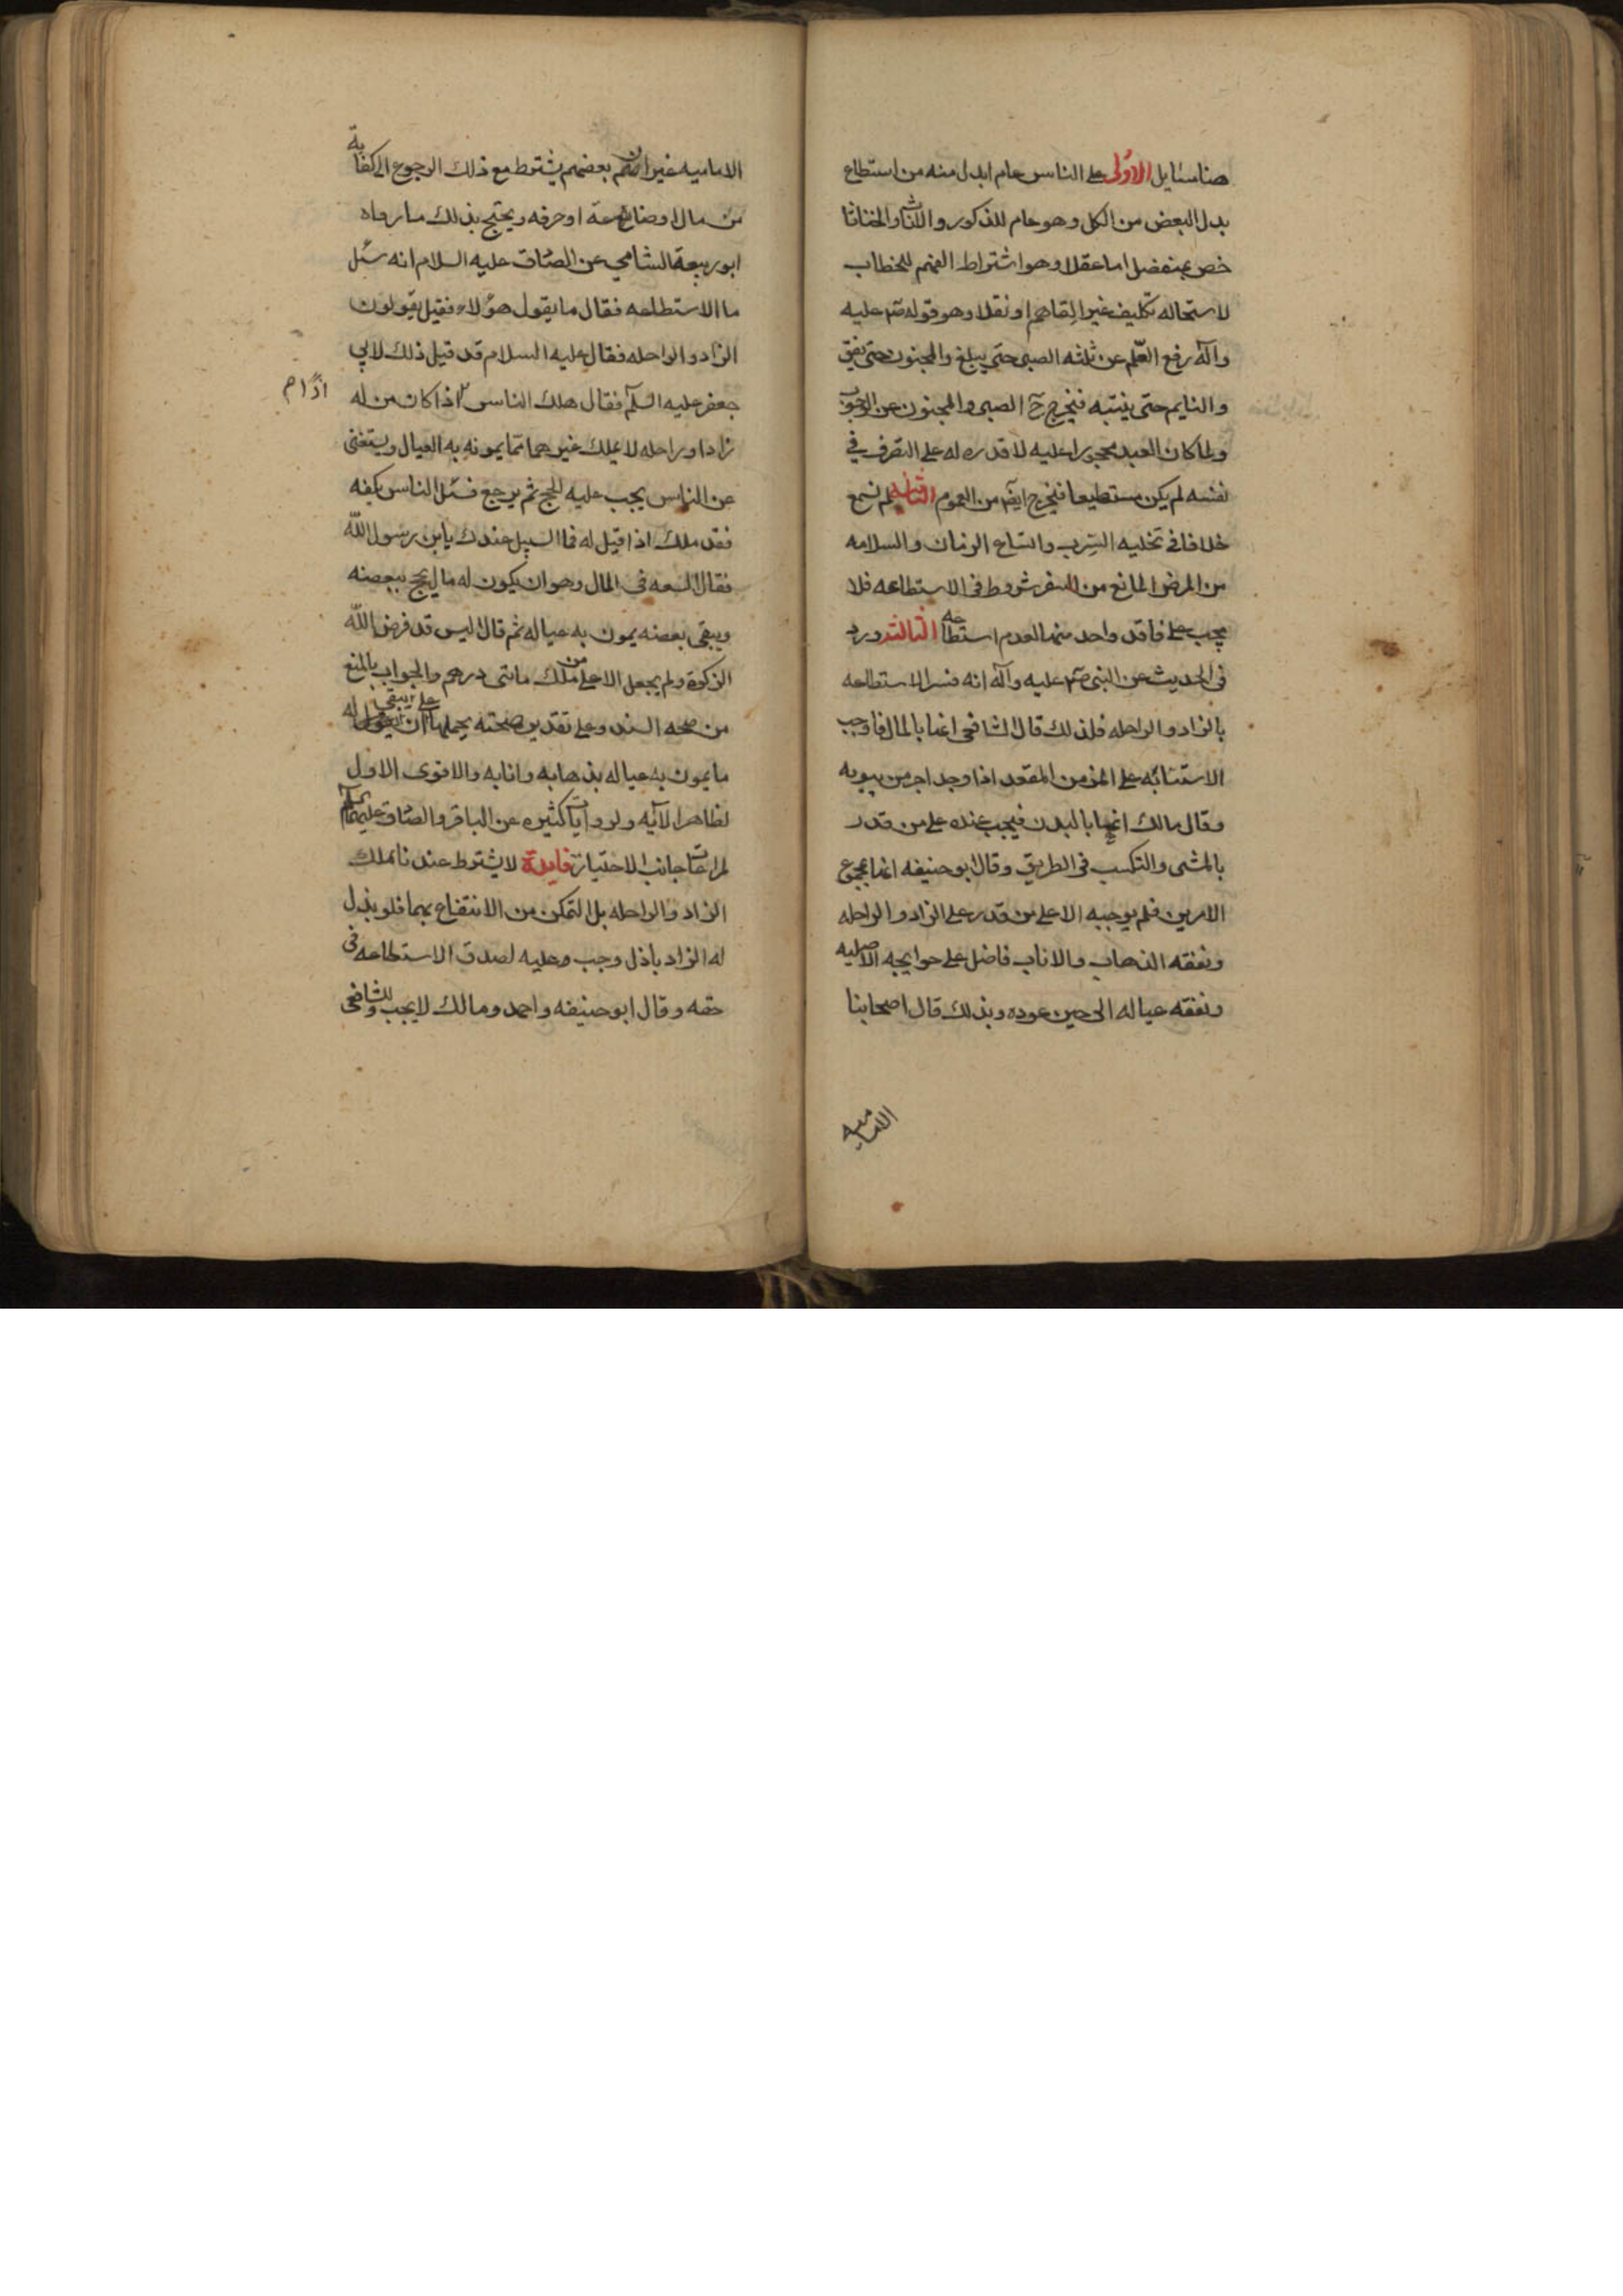 هنا مسايل الاولى على الناس عام ابدل منه من استطاع
بدل البعض من الكل وهو عام للذكور والاناث والخناثا
خص بمنفصل اما عقلا وهو اشتراط الفهم للخطاب
لاستحاله تكليف غير الفاهم او نقلا وهو قوله صم عليه
وآله رفع القلم عن ثلثه الصبى حتى يبلغ والمجنون حتى يفيق
والنايم حتى ينتبه فيخرج ح الصبى والمجنون عن الوجوب
ولما كان العبد محجورا عليه لا قدره له على التصرف في
نفسه لم يكن مستطيعا فيخرج ايضا من العموم الثانيه لم نسمع
خلافا في تخليه السرب واتساع الزمان والسلامه
من المرض المانع من السفر شروط في الاستطاعه فلا
يجب على فاقد واحد منها لعدم استطاعته الثالثه ورد
في الحديث عن النبى صم عليه وآله انه فسر الاستطاعه
بالزاد والراحله فلذلك قال الشافعى انها بالمال فاوجب
الاستنابه على الزمن المقعد اذا وجد اجر من ينوبه
وقال مالك انها بالبدن فيجب عنده على من قدر
بالمشى والتكسب في الطريق وقال ابو حنيفه انها بمجموع
الامرين فلم يوجبه الا على من قدر على الزاد والراحله
ونفقه الذهاب والاياب فاضل على حوايجه الاصليه
ونفقه عياله الى حين عوده وبذلك قال اصحابنا
الاماميه
الاماميه غير ان بعضهم يشترط مع ذلك الرجوع الى كفاية
من مال او صناعة او حرفه ويحتج بذلك ما رواه
ابو ربيعة الشامي عن الصادق عليه السلام انه سئل
ما الاستطاعه فقال ما يقول هؤلاء فقيل يقولون
الزاد والراحله فقال عليه السلام قد قيل ذلك لابي
جعفر عليه السلم فقال هلك الناس اذا كان من له
اذا م
زادا وراحله لا يملك غيرهما مما يمونه به العيال ويستغنى
عن الناس يجب عليه الحج ثم يرجع فسئل الناس بكفه
فقد هلك اذا قيل له فما السبيل عندك يابن رسول الله
فقال السعه في المال وهو ان يكون له ما يحج ببعضه
ويبقى بعضه يمون به عياله ثم قال اليس قد فرض الله
الزكوة ولم يجعل الا على من ملك مائتى درهم والجواب بالمنع
من صحه السند وعلى تقدير صحته يحملها على ان يبقى له
ما يمون به عياله بذهابه وايابه والاقوى الاول
لظاهر الآيه ولروايات كثيره عن الباقر والصادق عليهما السلم
لمراعات جانب الاحتياز فايدة لا يشترط عندنا ملك
الزاد والراحله بل التمكن من الانتفاع بهما فلو بذل
له الزاد باذل وجب وعليه لصدق الاستطاعه في
حقه وقال ابو حنيفه واحمد ومالك لا يجب وللشافعى